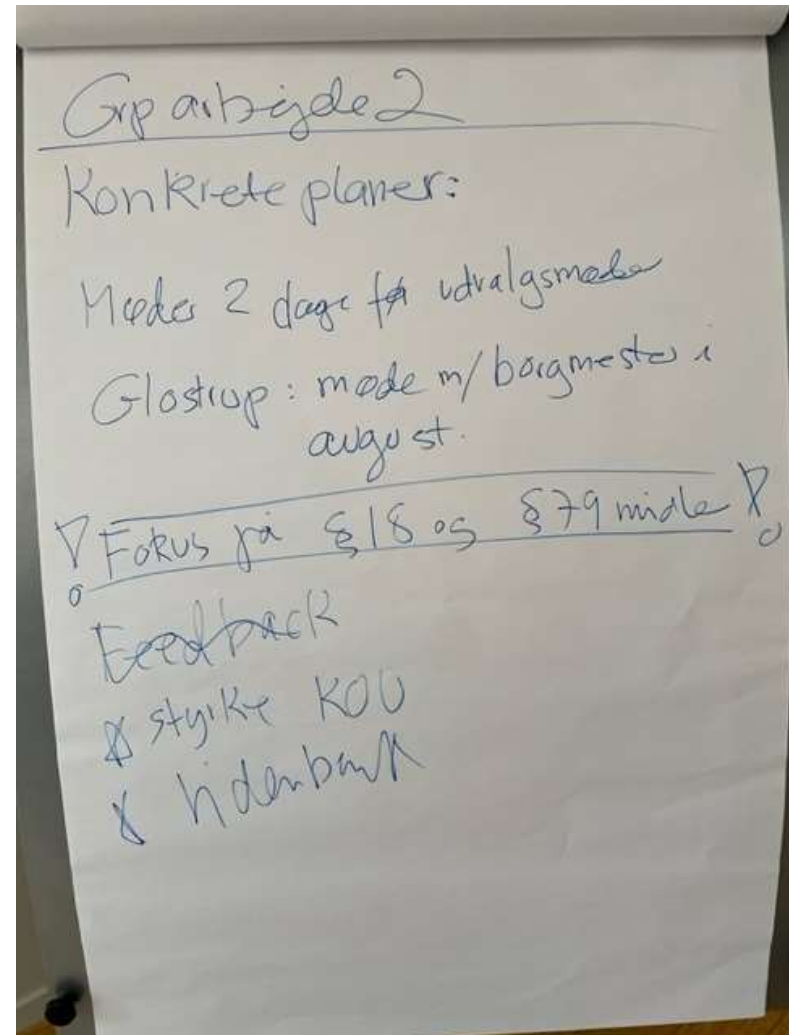 Grp arbejde 2
Konkrete planer:
Møder 2 dage før udvalgsmøder
Glostrup: møde m/borgmester i
august.
! Fokus på §18 og §79 midler !
Feedback
* styrke KOU
* Videnbank